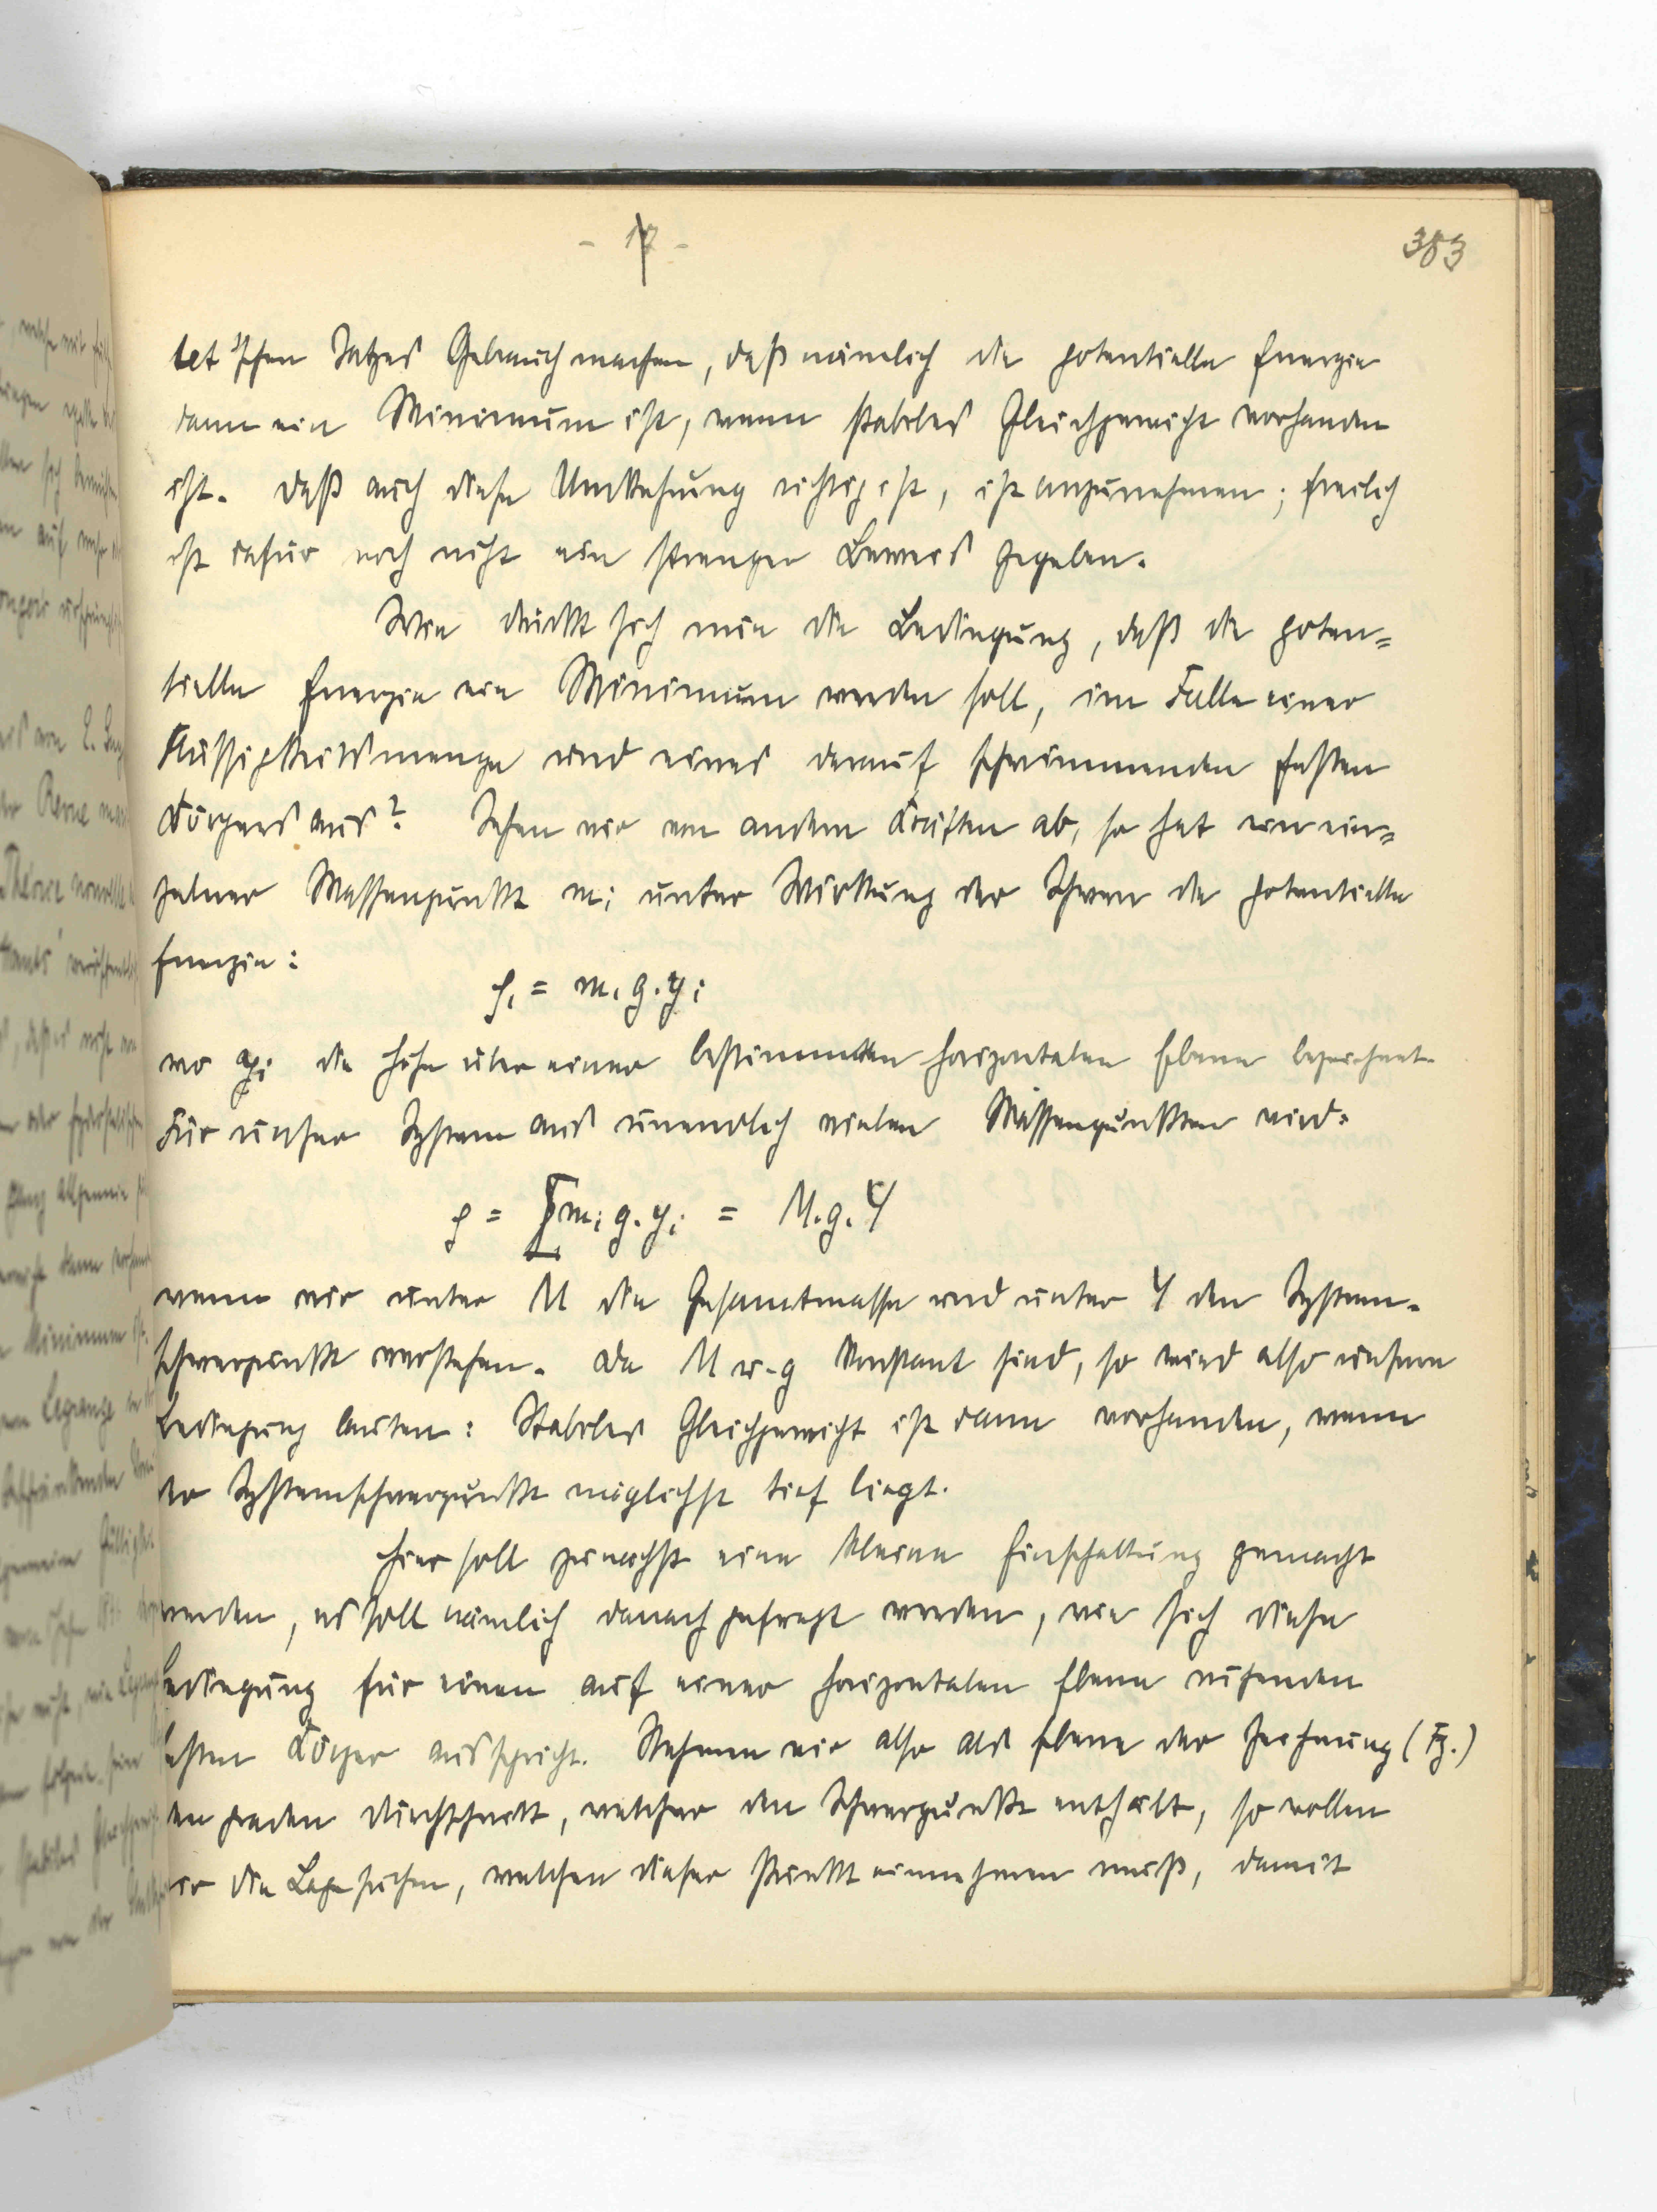 - 17 -
383
let'schen Satzes Gebrauch machen, daß nämlich die potentielle Energie
dann ein Minimum ist, wenn stabiles Gleichgewicht vorhanden
ist. Daß auch diese Umkehrung richtig ist, ist anzunehmen; freilich
ist dafür noch nicht ein strenger Beweis gegeben.
Wie drückt sich nun die Bedingung, daß die poten=
tielle Energie ein Minimum werden soll, im Falle einer
Flüssigkeitsmenge und eines darauf schwimmenden festen
Körpers aus? Sehen wir von andern Kräften ab, so hat ein ein=
zelner Massenpunkt mi unter Wirkung der Schwere die potentielle
Energie:
pi = mi g. yi
wo yi die Höhe über einer bestimmten horizontalen Ebene bezeichnet.
Für unser System aus unendlich vielen Massenpunkten wird:
p = ∑ mi g. yi = M. g. Y
wenn wir unter M die Gesamtmasse und unter Y den System-
schwerpunkt verstehen. Da M u. g konstant sind, so wird also unsere
Bedingung lauten: Stabiles Gleichgewicht ist dann vorhanden, wenn
der Systemschwerpunkt möglichst tief liegt.
Hier soll zunächst eine kleine Einschaltung gemacht
werden, es soll nämlich danach gefragt werden, wie sich diese
Bedingung für einen auf einer horizontalen Ebene ruhenden
festen Körper ausspricht. Nehmen wir also als Ebene der Zeichnung (Fg.)
den graden Durchschnitt, welcher den Schwerpunkt enthält, so wollen
wir die Lage suchen, welchen dieser Punkt einnehmen muß, damit